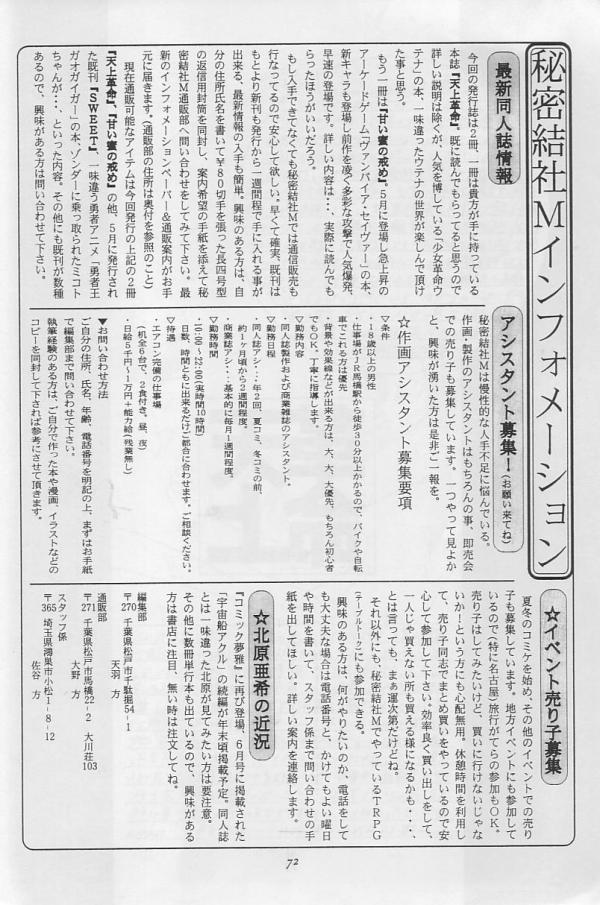 秘密結社Mインフォメーション
最新同人誌情報
今回の発行誌は2冊、一冊は貴方が手に持っている
本誌『天上革命』。既に読んでもらってると思うので
詳しい説明は除くが、人気を博している「少女革命ウ
テナ」の本、一味違ったウテナの世界が楽しんで頂け
た事と思う。
もう一冊は『甘い蜜の戒め』。5月に登場し急上昇の
アーケードゲーム「ヴァンパイア・セイヴァー」の本、
新キャラも登場し前作を凌ぐ多彩な攻撃で人気爆発、
早速の登場です。詳しい内容は・・、実際に読んでも
らったほうがいいだろう。
もし入手できてなくても秘密結社Mでは通信販売も
行なってるので安心して欲しい。早くて確実、既刊は
もとより新刊も発行から一週間程で手に入れる事が
出来る、最新情報の入手も簡単。興味のある方は、自
分の住所氏名を書いて￥80切手を張った長四号型
の返信用封筒を同封し、案内希望の手紙を添えて秘
密結社M通販部へ問い合わせをしてみて下さい。最
新のインフォメーションペーパー&通販案内がお手
元に届きます。(通販部の住所は奥付を参照のこと)
現在通販可能なアイテムは今回発行の上記の2冊
『天上革命』、『甘い蜜の戒め』の他、5月に発行され
た既刊『SWEET』、一味違う勇者アニメ「勇者王
ガオガイガー」の本、ゾンダーに乗っ取られたミコト
ちゃんが・・、といった内容。その他にも既刊が数種
あるので、興味がある方は問い合わせて下さい。
アシスタント募集!(お願い来てね)
秘密結社Mは慢性的な人手不足に悩んでいる。
作画・製作のアシスタントはもちろんの事、即売会
での売り子も募集しています。一つやって見よか
と、興味が湧いた方は是非ご一報を。
☆作画アシスタント募集要項
▼条件
・18歳以上の男性
・仕事場がJR馬橋駅から徒歩30分以上かかるので、バイクや自転
車でこれる方は優先
・背景や効果線などが出来る方は、大、大、大優先、もちろん初心者
でもOK、丁寧に指導します。
▼勤務内容
・同人誌製作および商業雑誌のアシスタント。
▼勤務日程
・同人誌アシ・・年2回、夏コミ、冬コミの前、
約1ケ月頃から2週間程度。
・商業誌アシ・・基本的に毎月1週間程度。
▼勤務時間
・10:00～12:00(実時間10時間)
日数、時間ともに出来るだけご都合に合わせます。ご相談ください。
▼待遇
・エアコン完備の仕事場
(机全6台で、2食付き。昼、夜)
・日給5千円～1万円+能力給(残業無し)
▼お問い合わせ方法
ご自分の住所、氏名、年齢、電話番号を明記の上、まずはお手紙
で編集部まで問い合わせて下さい。
執筆経験のある方は、ご自分で作った本や漫画、イラストなどの
コピーを同封して下されば参考にさせて頂きます。
☆イベント売り子募集
夏冬のコミケを始め、その他のイベントでの売り
子も募集しています。地方イベントにも参加して
いるので(特に名古屋)旅行がてらの参加もOK。
売り子はしてみたいけど、買いに行けないじゃな
いか!という方にも心配無用。休憩時間を利用し
て、売り子同志でまとめ買いをやっているので安
心して参加して下さい。効率良く買い出しをして、
一人じゃ買えない所も買える様になるかも・・・、
とは言っても、まぁ運次第だけどね。
それ以外にも、秘密結社MでやっているTRPG
(テーブルトーク)にも参加できる。
興味のある方は、何がやりたいのか、電話をして
も大丈夫な場合は電話番号と、かけてもよい曜日
や時間を書いて、スタッフ係まで問い合わせの手
紙を出してほしい。詳しい案内を連絡します。
☆北原亜希の近況
『コミック夢雅』に再び登場、6月号に掲載された
「宇宙船アクル」の続編が年末頃掲載予定。同人誌
とは一味違った北原が見てみたい方は要注意。
その他に数冊単行本も出ているので、興味がある
方は書店に注目、無い時は注文してね。
編集部
〒270 千葉県松戸市千駄堀54-1
天羽 方
通販部
〒271 千葉県松戸市馬橋22-2 大川荘103
大野 方
スタッフ係
〒365 埼玉県鴻巣市小松1-8-12
佐谷 方
72